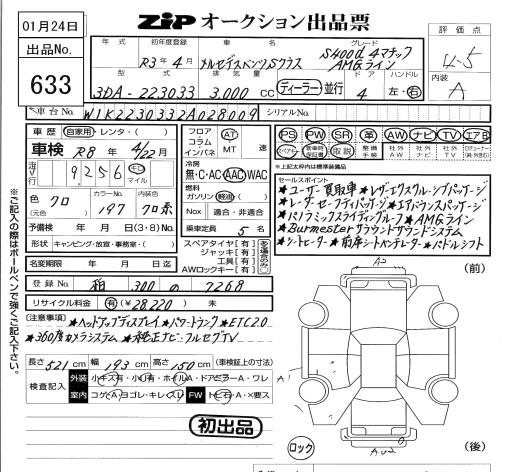 01月24日
出品No.
633
ZIP オークション出品票
評価点
4.5
内装
A
年式 初年度登録 車名 グレード
R3年4月 メルセデスベンツSクラス S400d 4マチック
AMGライン
型式 排気量 ドア ハンドル
3DA-223033 3,000 CC ディーラー・並行 4 左・右
車台No. W1K2230332A028009 シリアルNo.
車歴 自家用・レンタ・( )
車検 R8年4/22月
走行 9256 キロ マイル
色 クロ (元色) カラーNo. 197 内装色 クロ系
予備検 年 月 日(3・8)No.
形状 キャンピング・放宣・事務室・( )
名変期限 年 月 日迄
フロア コラム インパネ AT MT 速
冷房
無・C・AC AAC WAC
燃料
ガソリン 軽油・( )
Nox 適合・非適合
乗車定員 5名
スペアタイヤ[有]
ジャッキ[有]
工具[有]
AWロックキー[有]
PS PW SR 革 AW ナビ TV エアB
スペアキー 新車時保証書 取説 整備手帳 AW社外 ナビ社外 TV社外
※上記太枠内は標準装備品
セールスポイント
★ユーザー買取車 ★レザーエクスクルーシブパッケージ
★レーザーセーフティパッケージ ★エアバランスパッケージ
★パノラミックスライディングルーフ ★AMGライン
★Burmesterサラウンドサウンドシステム
★シートヒーター ★前席シートベンチレーター ★パドルシフト
登録No. 柏 300 の 7268
リサイクル料金 有(¥28,220) 未
(注意事項) ★ヘッドアップディスプレイ ★パワートランク ★ETC2.0
★360度カメラシステム ★純正ナビ・フルセグTV
長さ521cm 幅193cm 高さ150cm (車検証上の寸法)
検査記入 外装 小キズ有・小凹有・ホイルA・ドアミラーA・ワレ
室内 コゲA・ヨゴレ・キレ・スレ FW トビ石・A・×要ス
初出品
※ご記入の際はボールペンで強くご記入下さい。
(前)
A1
ロック
(後)